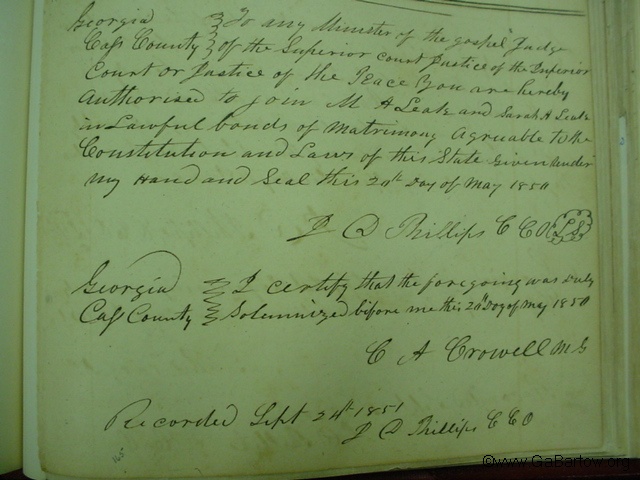 Georgia } To any Minister of the gospel Judge
Cass County } of the Superior court Justice of the Inferior
Court or Justice of the Peace You are hereby
Authorised to join M A Leak and Sarah A Leak
in Lawful bonds of matrimony Agreuable to the
Constitution and Laws of this State Given under
my Hand and Seal this 20th Day of May 1850
P D Phillips C C O LS
Georgia } I certify that the foregoing was Duly
Cass County } Solemnized before me this 20th Day of May 1850
C A Crowell M G
Recorded Sept 24th 1851
P D Phillips C C O
165
©www.GaBartow.org